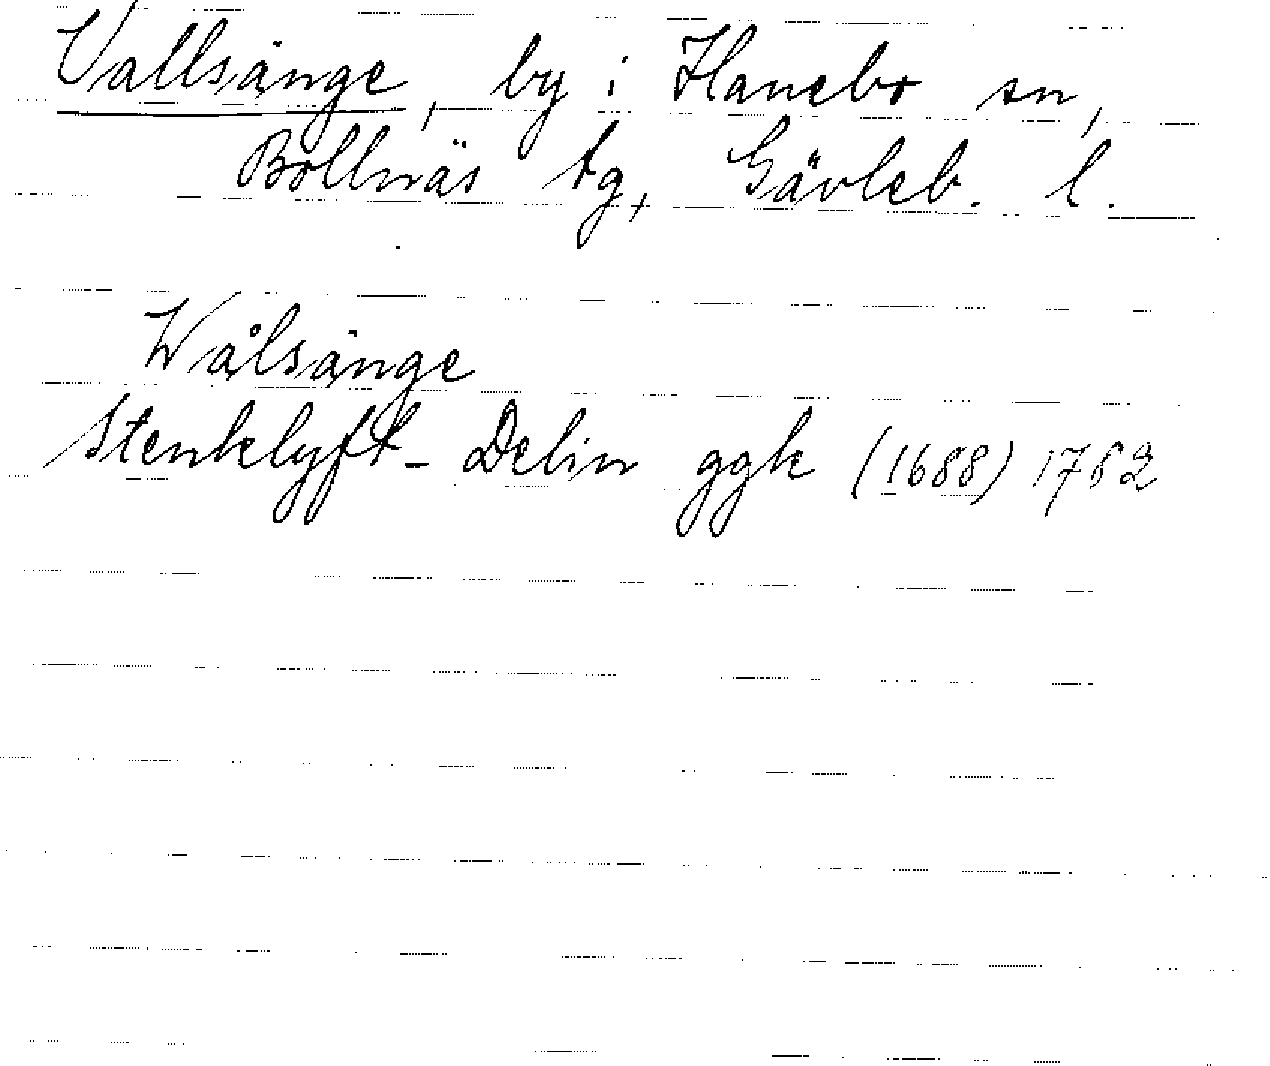 Vallsänge, by i Hanebo sn,
Bollnäs tg, Gävleb. l.
Wålsänge
Stenklyft-Delin ggk (1688) 1762